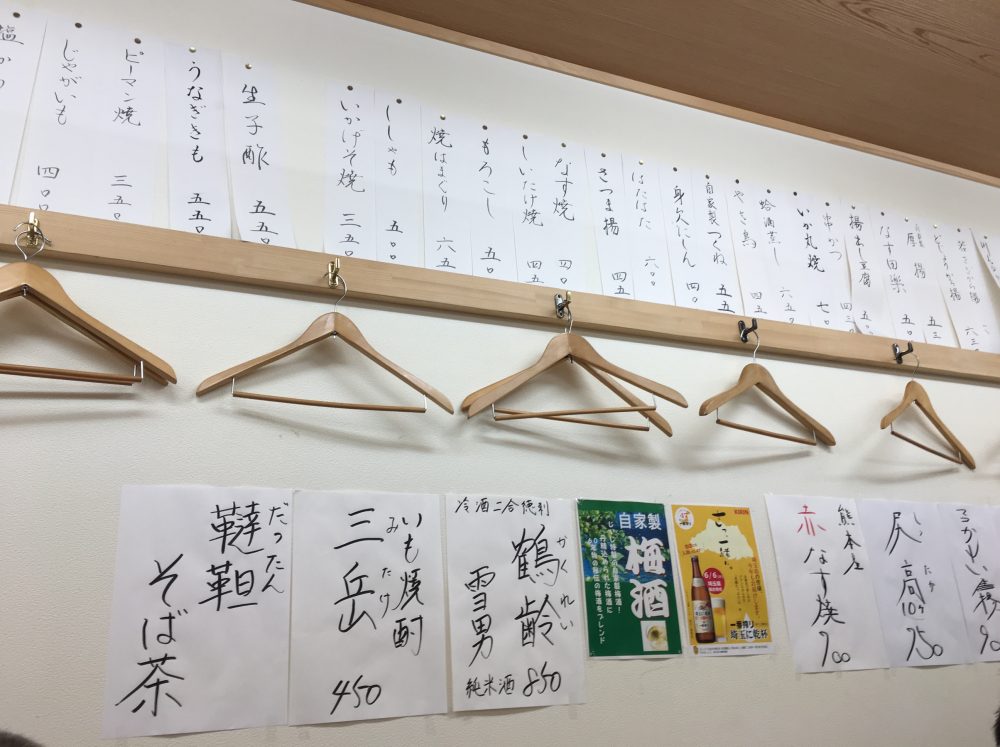 塩から
じゃがいも 四〇〇
ピーマン焼 三五〇
うなぎきも 五五〇
生子酢 五五〇
いかげそ焼 三五〇
ししゃも 五〇
焼はまぐり 六五
もろこし 五〇
しいたけ焼 四五
なす焼 四〇
さつま揚 四五
はたはた 六〇
身欠にしん 四〇
自家製つくね 五五
やき鳥 四五
蛤酒蒸し 六五〇
いか丸焼 七〇
串かつ 四三〇
揚出し豆腐 五〇
なす田楽 五〇
厚揚 五三
だったん
韃靼
そば茶
いも焼酎
みたけ
三岳
450
冷酒二合徳利
かくれい
鶴齢
雪男
純米酒 850
自家製
梅酒
60年物の秘伝の梅酒をブレンド
KIRIN
6/6
一番搾り
埼玉に乾杯
熊本産
赤なす焼
900
尻高
10割
750